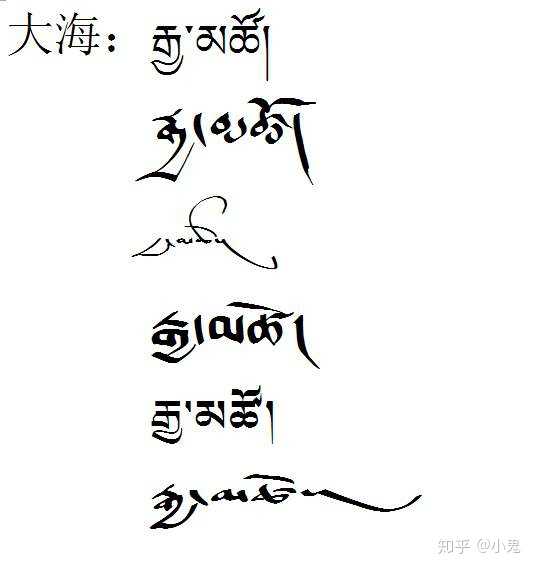 大海：རྒྱ་མཚོ།
རྒྱ་མཚོ།
རྒྱ་མཚོ།
རྒྱ་མཚོ།
རྒྱ་མཚོ།
རྒྱ་མཚོ།
知乎 @小鬼